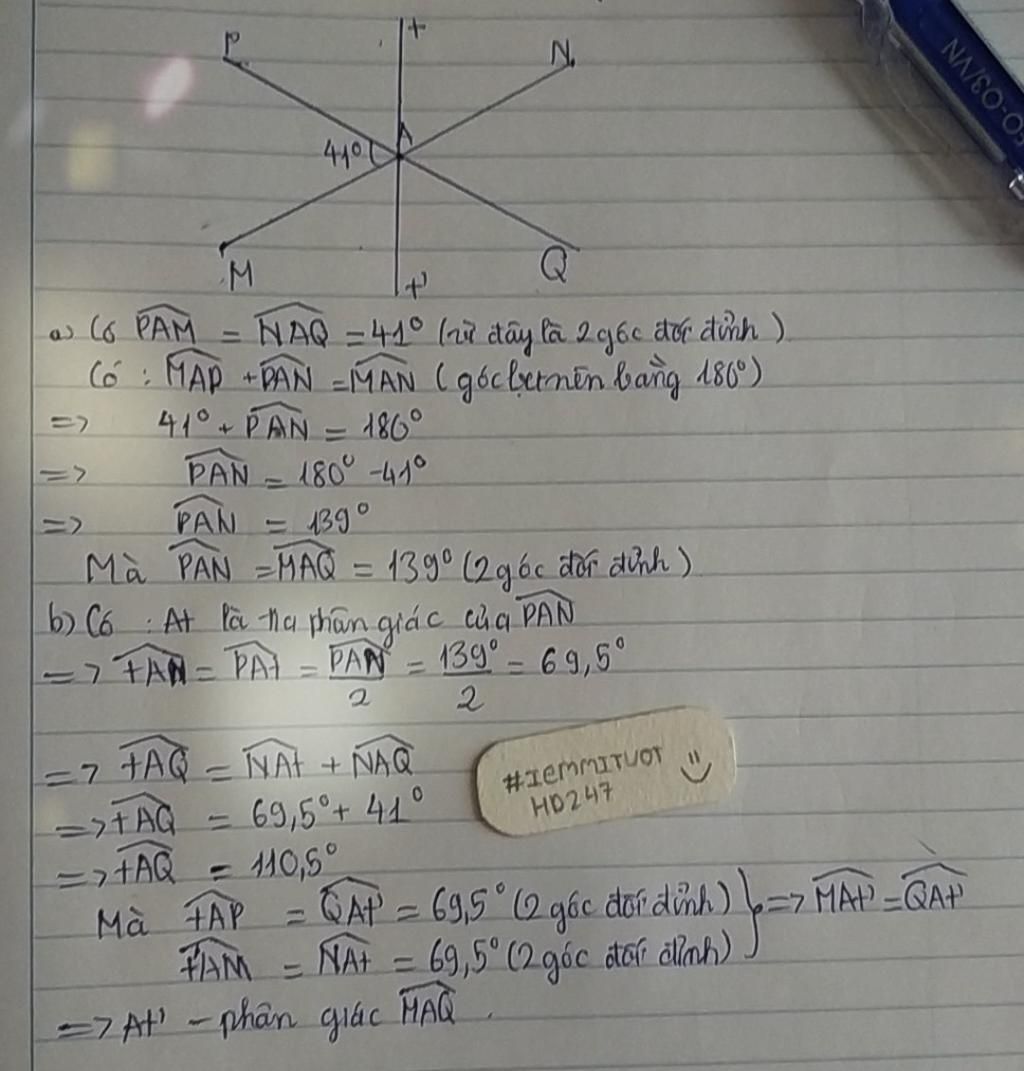 P
t
N
A
41°
M
Q
t'
a) Có PAM = NAQ = 41° (vì đây là 2 góc đối đỉnh)
Có : MAP + PAN = MAN (góc bẹt nên bằng 180°)
=> 41° + PAN = 180°
=> PAN = 180° - 41°
=> PAN = 139°
Mà PAN = MAQ = 139° (2 góc đối đỉnh)
b) Có : At là tia phân giác của PAN
=> tAN = PAt = PAN/2 = 139°/2 = 69,5°
=> tAQ = NAt + NAQ
=> tAQ = 69,5° + 41°
=> tAQ = 110,5°
Mà tAP = QAt' = 69,5° (2 góc đối đỉnh) } => MAt' = QAt'
tAM = NAt = 69,5° (2 góc đối đỉnh)
=> At' - phân giác MAQ.
#IEMMITUOT
HD247
CO-03/VN